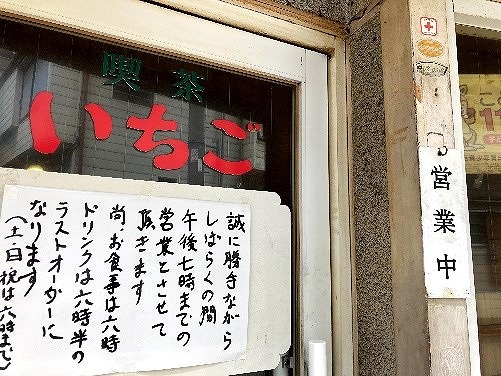 喫茶
いちご
誠に勝手ながら
しばらくの間
午後七時までの
営業とさせて
頂きます
尚、お食事は六時
ドリンクは六時半の
ラストオーダーに
なります
(土・日・祝は六時まで)
営業中